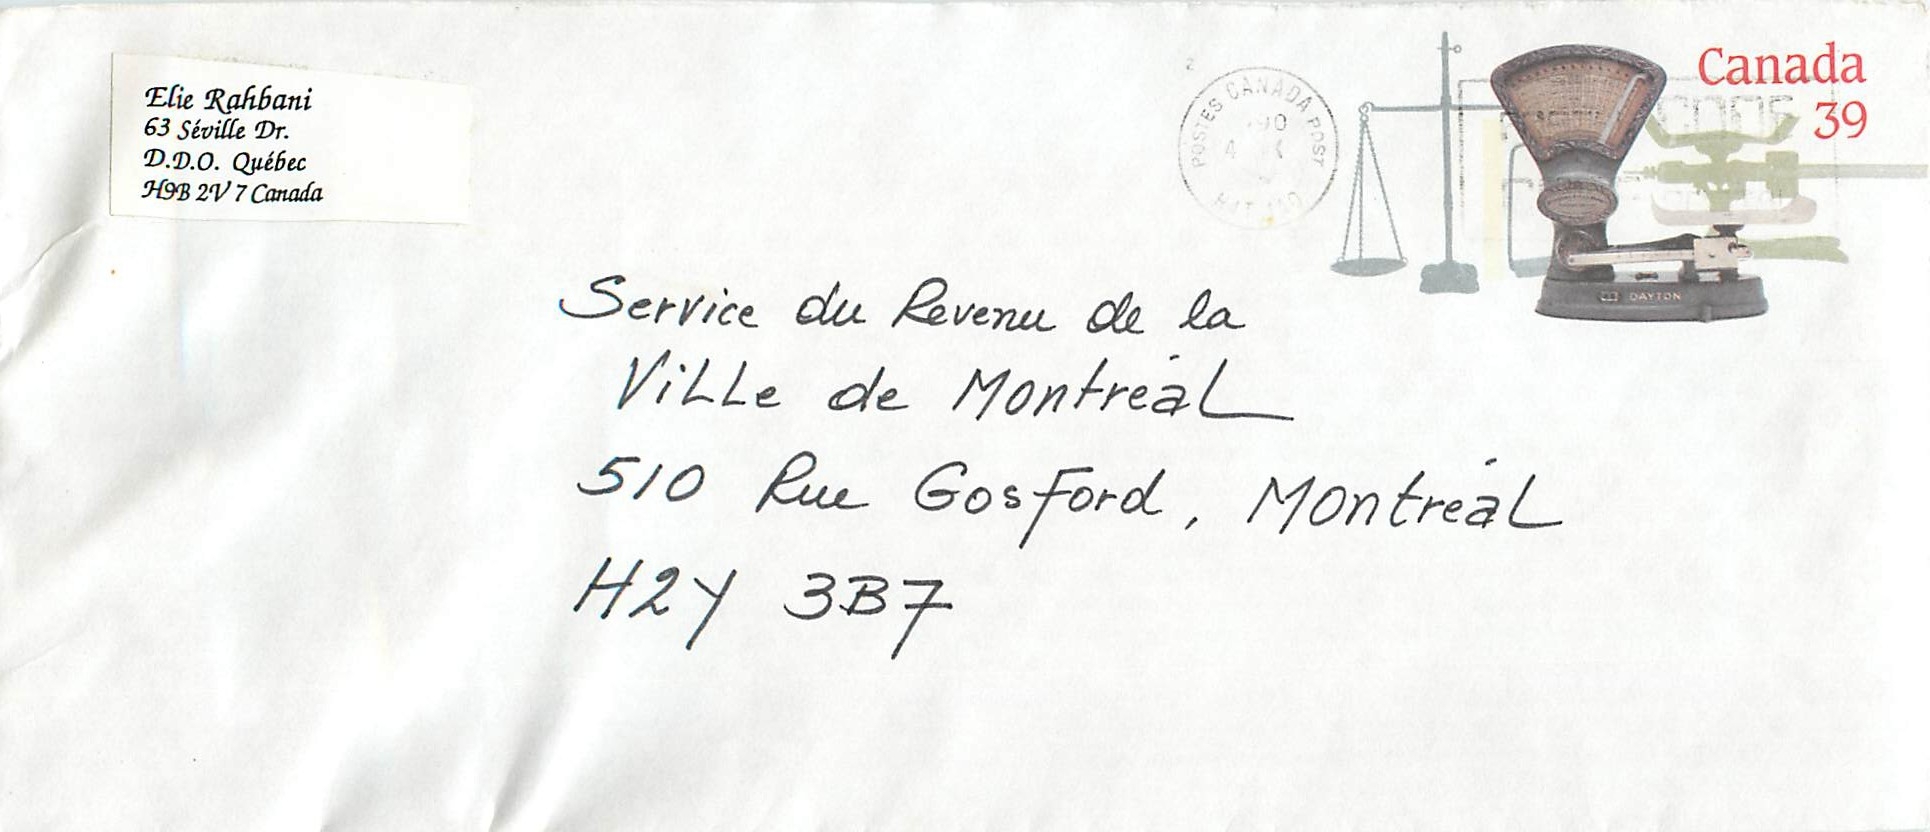 Elie Rahbani
63 Séville Dr.
D.D.O. Québec
H9B 2V 7 Canada
POSTES CANADA POST
90
4
Canada
39
DAYTON
Service du Revenu de la
Ville de Montréal
510 Rue Gosford, Montréal
H2Y 3B7